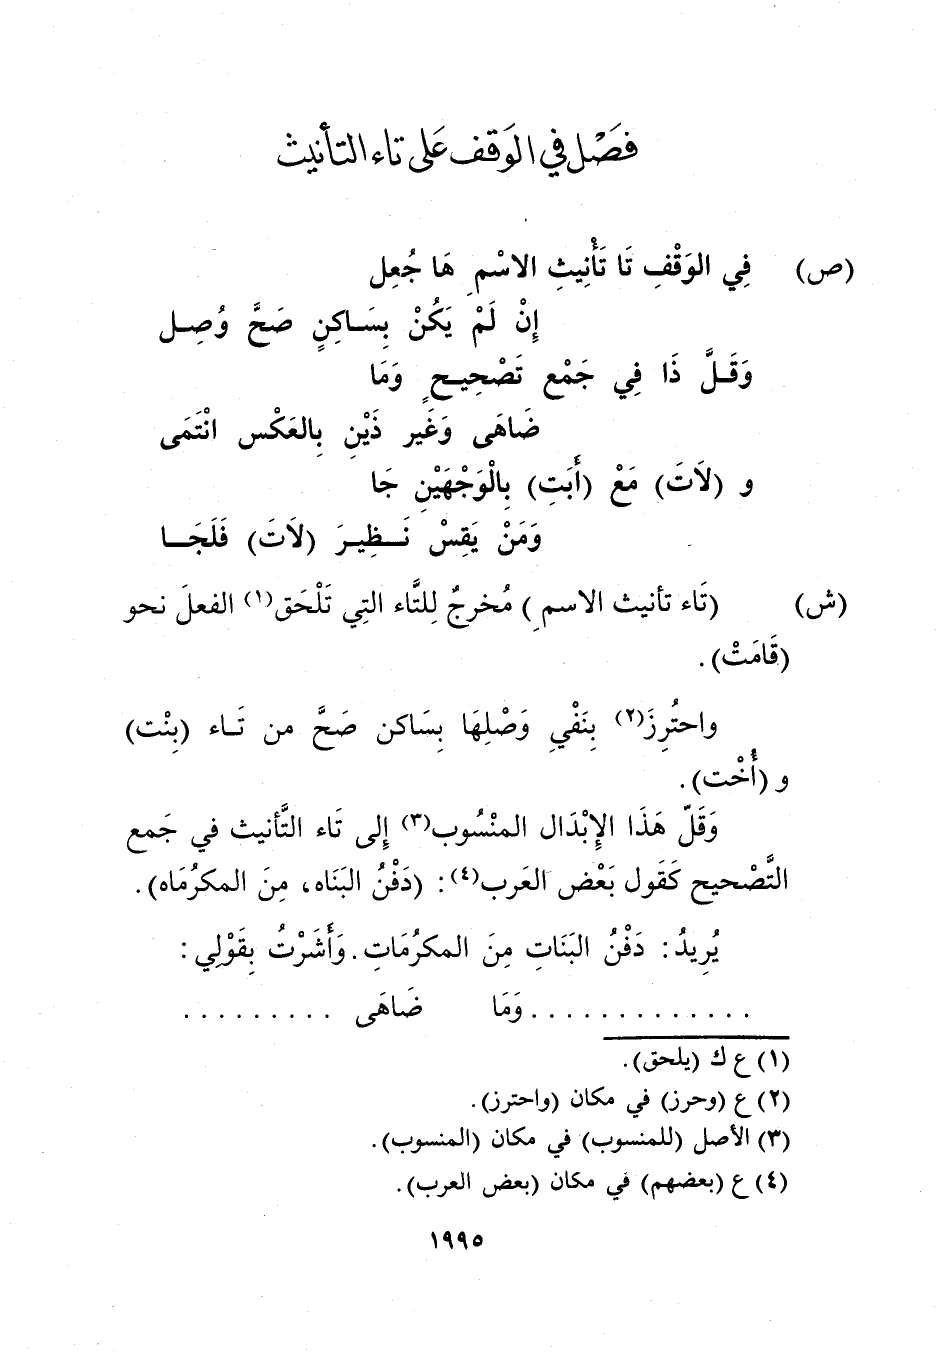 فَصْل في الوَقف عَلى تاء التأنيث
(ص) فِي الوَقْفِ تَا تَأْنِيثِ الاسْمِ هَا جُعِل
إِنْ لَمْ يَكُنْ بِسَاكِنٍ صَحَّ وُصِل
وَقَلَّ ذَا فِي جَمْعِ تَصْحِيحٍ وَمَا
ضَاهَى وَغَير ذَيْنِ بِالعَكْسِ انْتَمَى
و (لاَتَ) مَعْ (أَبَتِ) بِالْوَجْهَيْنِ جَا
وَمَنْ يَقِسْ نَظِيرَ (لاَتَ) فَلَجَا
(ش) (تَاء تأنيث الاسمِ) مُخرجٌ لِلتَّاء التِي تَلْحَق(١) الفعلَ نحو
(قَامَتْ).
واحتُرِزَ(٢) بِنَفْيِ وَصْلِهَا بِسَاكن صَحَّ من تَاء (بِنْت)
و (أُخْت).
وَقَلّ هَذَا الإِبْدَال المنْسُوب(٣) إِلى تَاء التَّأنيث في جَمع
التَّصْحيح كَقَول بَعْض العَرب(٤): (دَفْنُ البَنَاه، مِنَ المكرُمَاه).
يُرِيدُ: دَفْنُ البَنَاتِ مِنَ المكرُمَاتِ. وَأَشَرْتُ بِقَوْلِي:
............. وَمَا ضَاهَى .........
(١) ع ك (يلحق).
(٢) ع (وحرز) في مكان (واحترز).
(٣) الأصل (للمنسوب) في مكان (المنسوب).
(٤) ع (بعضهم) في مكان (بعض العرب).
١٩٩٥